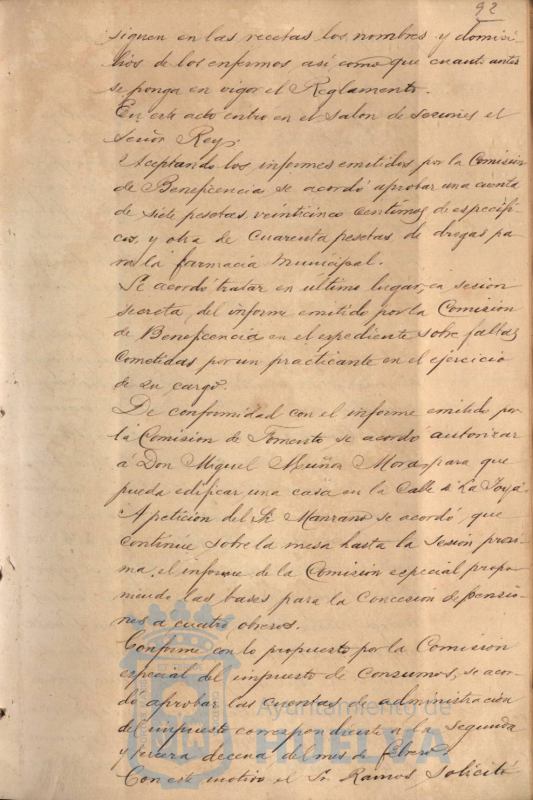 92
siguen en las recetas los nombres y domici-
lios de los enfermos así como que cuanto antes
se ponga en vigor el Reglamento.
En este acto entro en el salon de sesiones el
Señor Rey.
Aceptando los informes emitidos por la Comision
de Beneficencia se acordó aprobar una cuenta
de siete pesetas veinticinco centimos de especifi-
cos, y otra de cuarenta pesetas de drogas pa
ra la farmacia municipal.
Se acordo tratar en ultimo lugar, en sesion
secreta, del informe emitido por la Comision
de Beneficencia en el espediente sobre faltas
cometidas por un practicante en el ejercicio
de su cargo.
De conformidad con el informe emitido por
la Comision de Fomento se acordó autorizar
á Don Miguel Muñoz Moras para que
pueda edificar una casa en la Calle de La Joya.
A peticion del Sr. Manzano se acordó, que
continúe sobre la mesa hasta la sesión proxi-
ma, el informe de la Comision especial propo-
niendo las bases para la concesion de pensio-
nes a cuatro obreros.
Conforme con lo propuesto por la Comision
especial del impuesto de Consumos, se acor-
dó aprobar las cuentas de administración
del impuesto correspondiente a la segunda
y tercera decena del mes de febrero.
Con este motivo el Sr. Ramos, solicitó
Ayuntamiento de
HUELVA